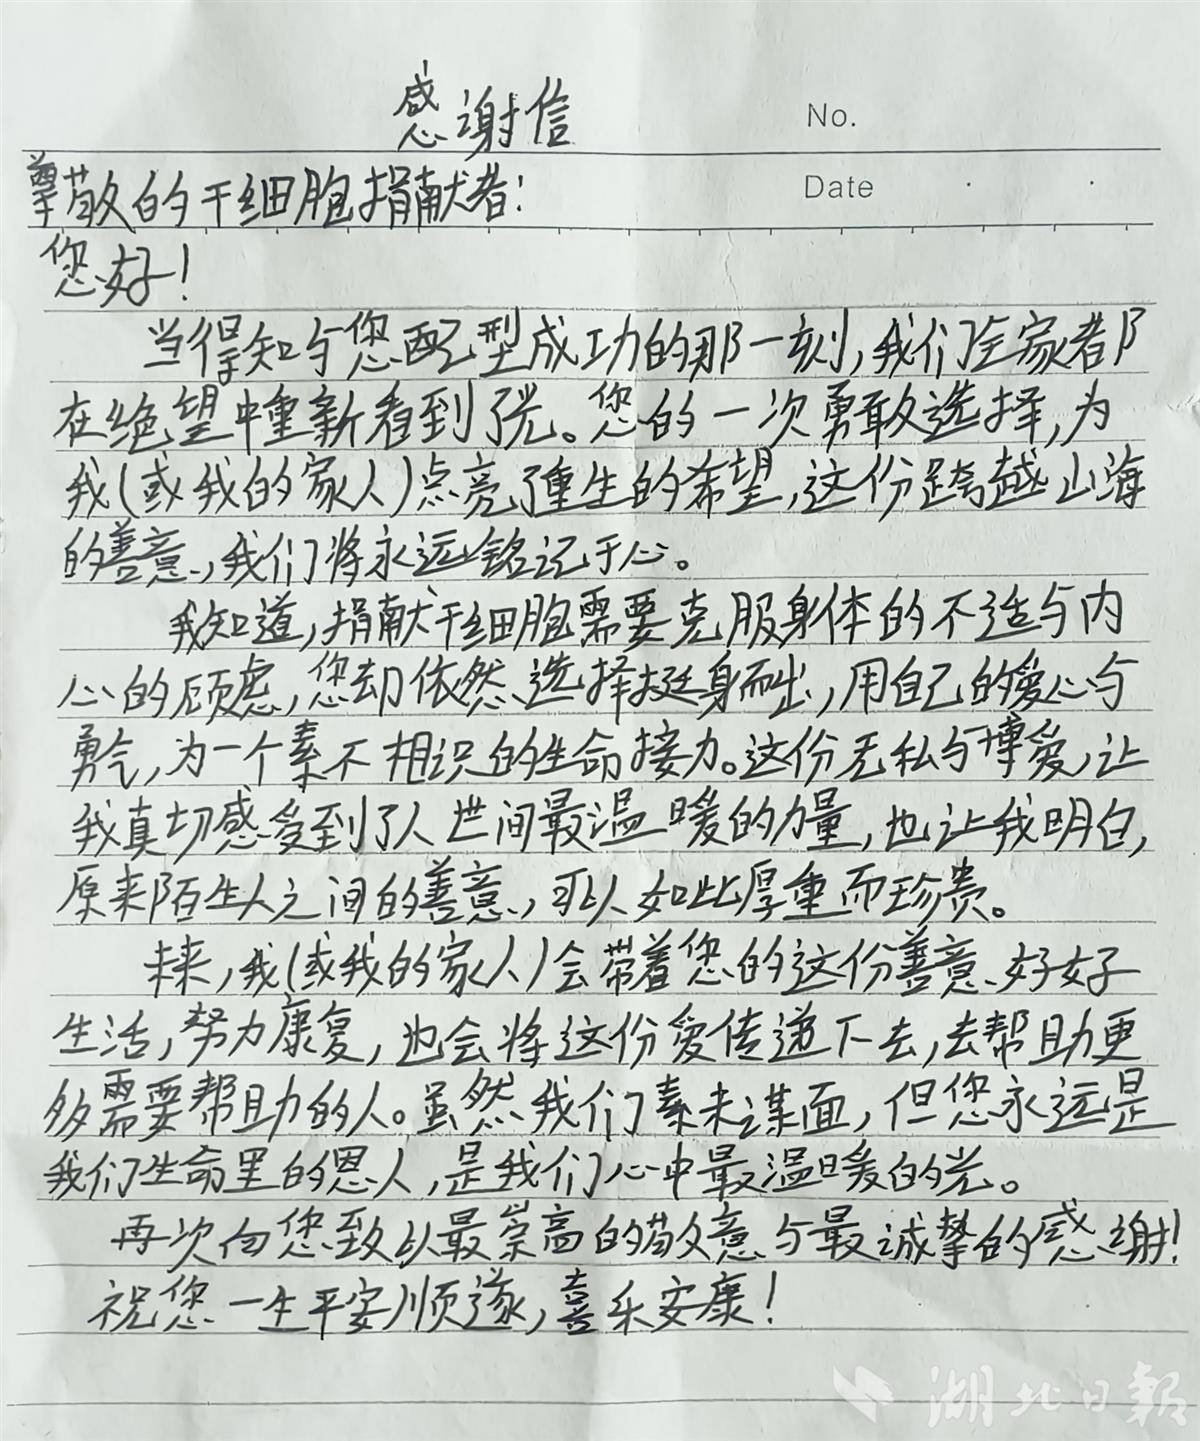 感谢信
No.
尊敬的干细胞捐献者：
Date
您好！
当得知与您配型成功的那一刻，我们全家都
在绝望中重新看到了光。您的一次勇敢选择，为
我（或我的家人）点亮了重生的希望，这份跨越山海
的善意，我们将永远铭记于心。
我知道，捐献干细胞需要克服身体的不适与内
心的顾虑，您却依然选择挺身而出，用自己的爱心与
勇气，为一个素不相识的生命接力。这份无私与博爱，让
我真切感受到了人世间最温暖的力量，也让我明白，
原来陌生人之间的善意，可以如此厚重而珍贵。
未来，我（或我的家人）会带着您的这份善意、好好
生活，努力康复，也会将这份爱传递下去，去帮助更
多需要帮助的人。虽然我们素未谋面，但您永远是
我们生命里的恩人，是我们心中最温暖的光。
再次向您致以最崇高的敬意与最诚挚的感谢！
祝您一生平安顺遂，喜乐安康！
湖北日报